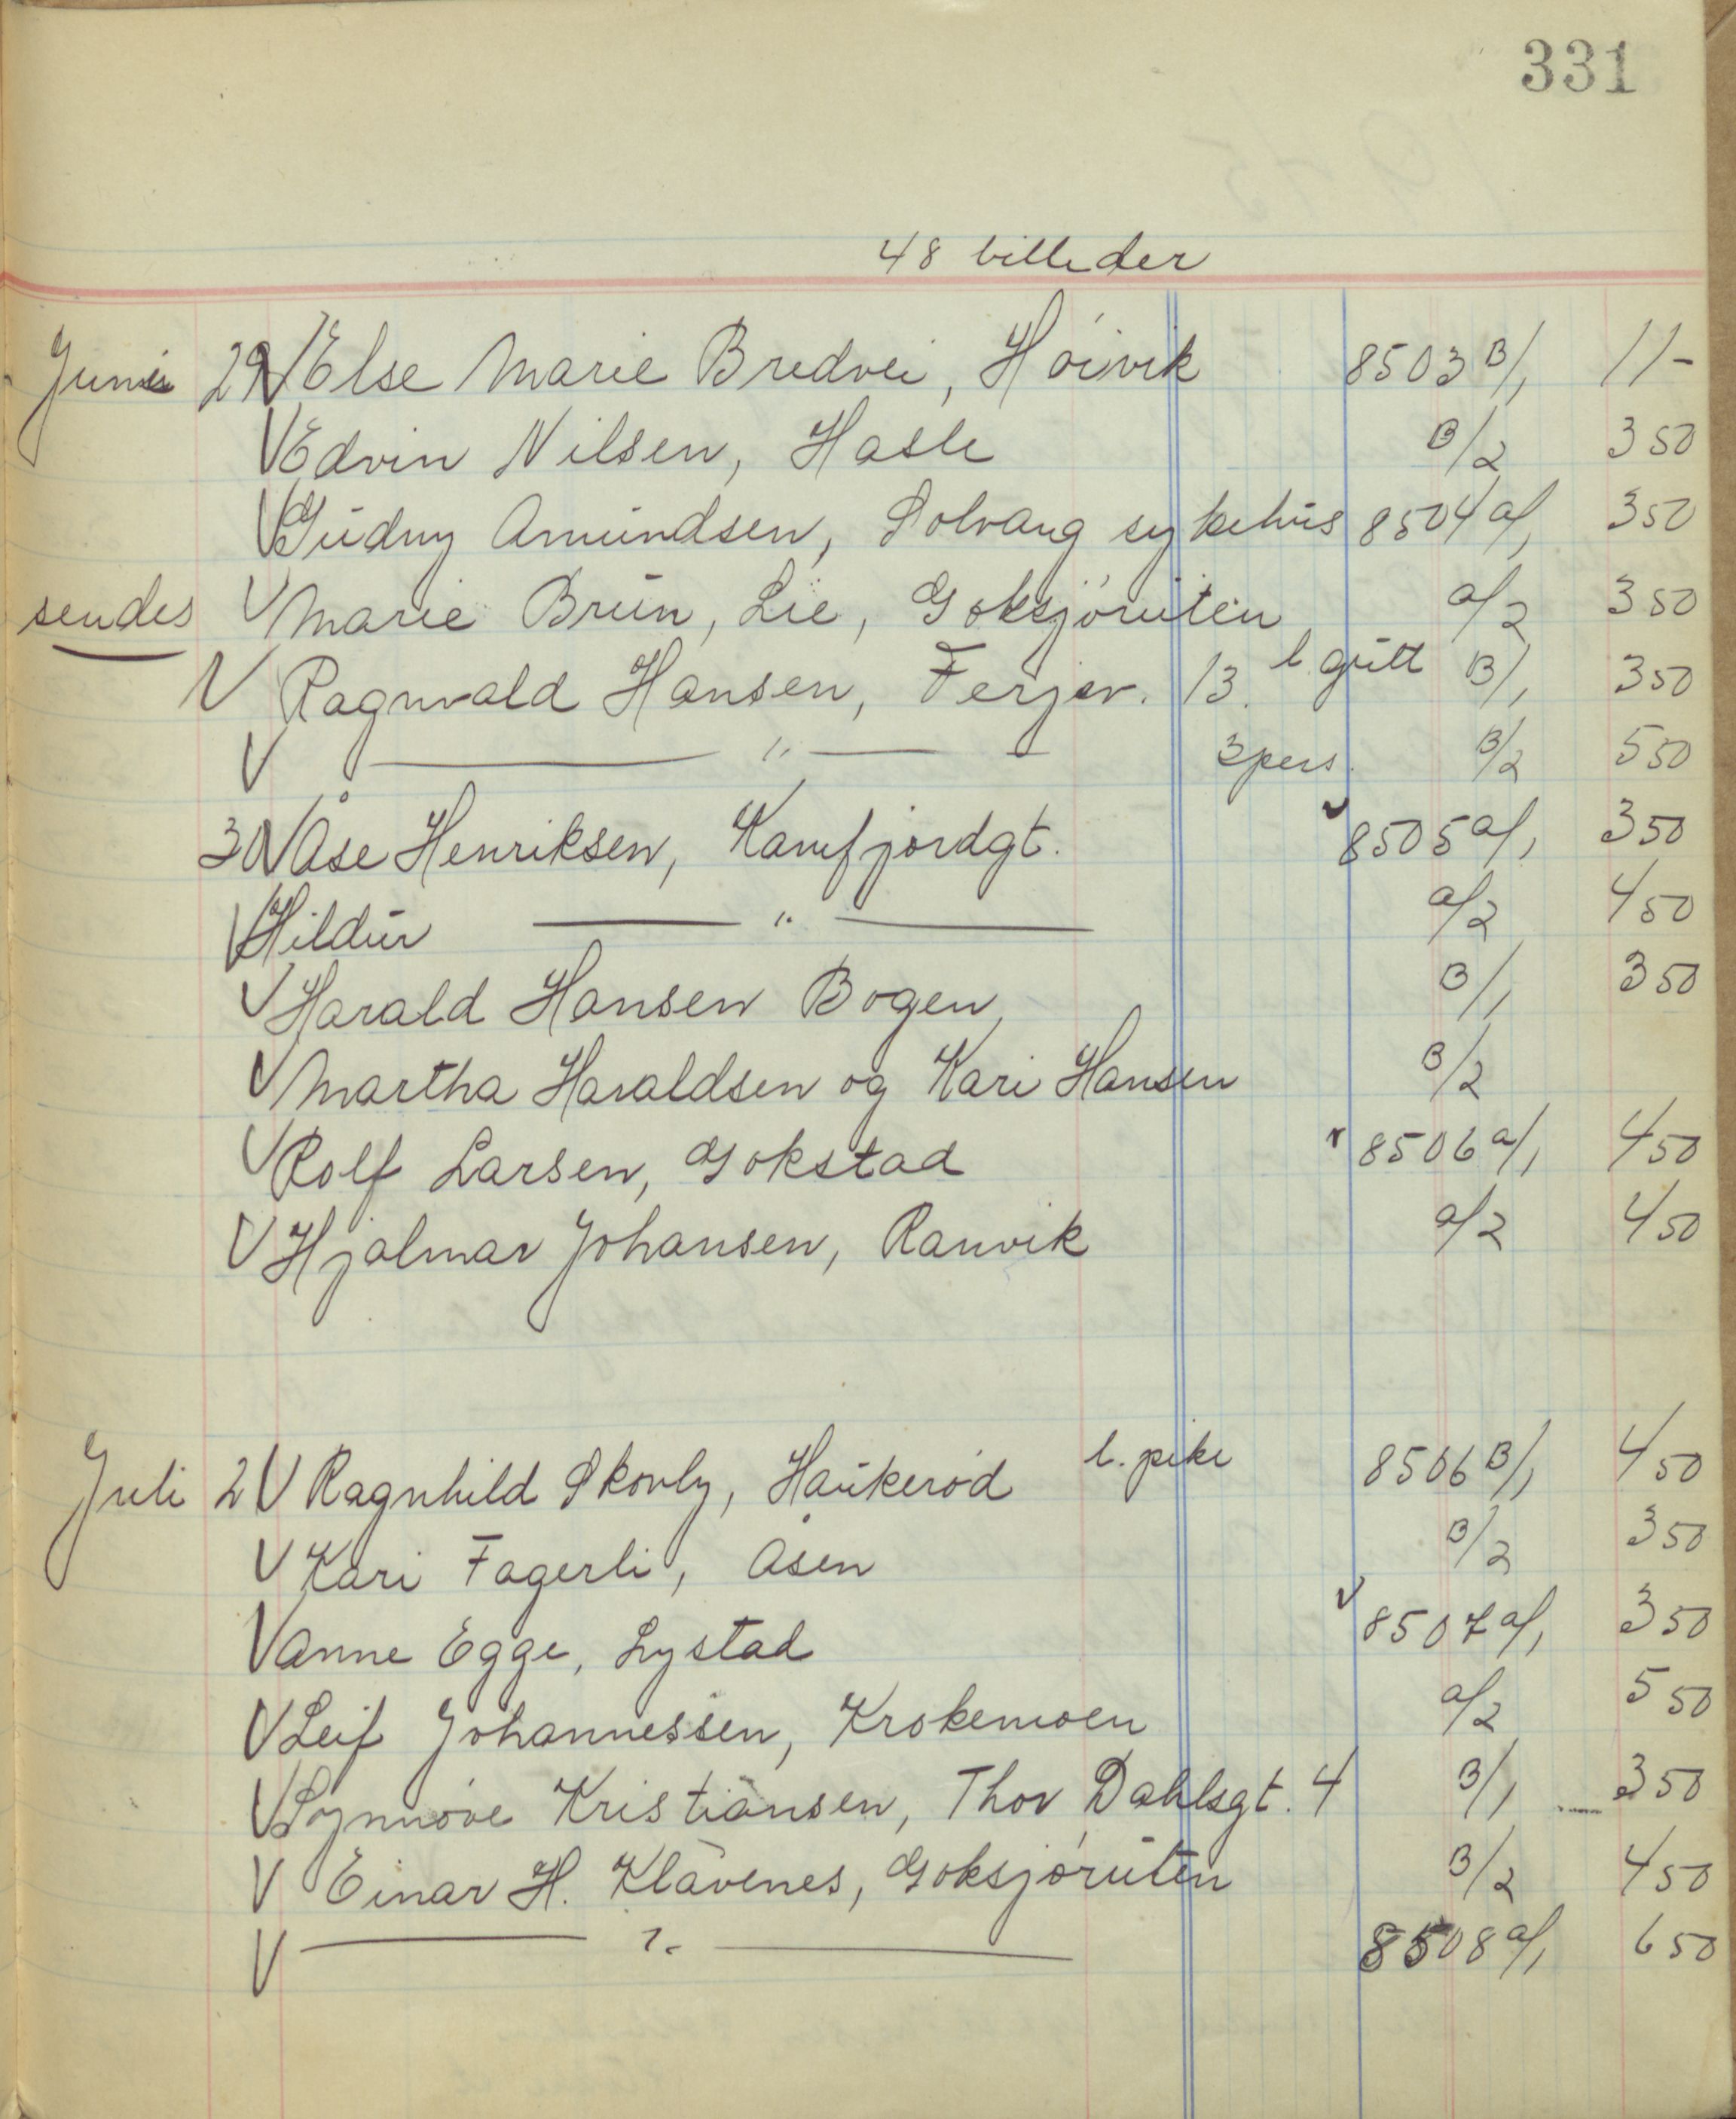 331
48 billeder
Juni 29 V Else Marie Bredvei, Høivik 8503 B/1 11-
V Edvin Nilsen, Hasle B/2 3 50
V Gudny Amundsen, Solvang sykehus 8504 a/1 3 50
sendes V Marie Brun, Lie, Goksjøruten a/2 3 50
V Ragnvald Hansen, Ferjev. 13. l. gutt B/1 3 50
V — " — 3 pers. B/2 5 50
30 V Åse Henriksen, Kamfjordgt. V 8505 a/1 3 50
V Hildur — " — a/2 4 50
V Harald Hansen Bogen, B/1 3 50
V Martha Haraldsen og Kari Hansen B/2
V Rolf Larsen, Gokstad 8506 a/1 4 50
V Hjalmar Johansen, Ranvik a/2 4 50
Juli 2 V Ragnhild Skovly, Haukerød l. pike 8506 B/1 4 50
V Kari Fagerli, Åsen B/2 3 50
V Anne Egge, Lystad V 8507 a/1 3 50
V Leif Johannessen, Krokemoen a/2 5 50
V Synnøve Kristiansen, Thor Dahlsgt. 4 B/1 3 50
V Einar H. Klavenes, Goksjøruten B/2 4 50
V — " — 8508 a/1 6 50